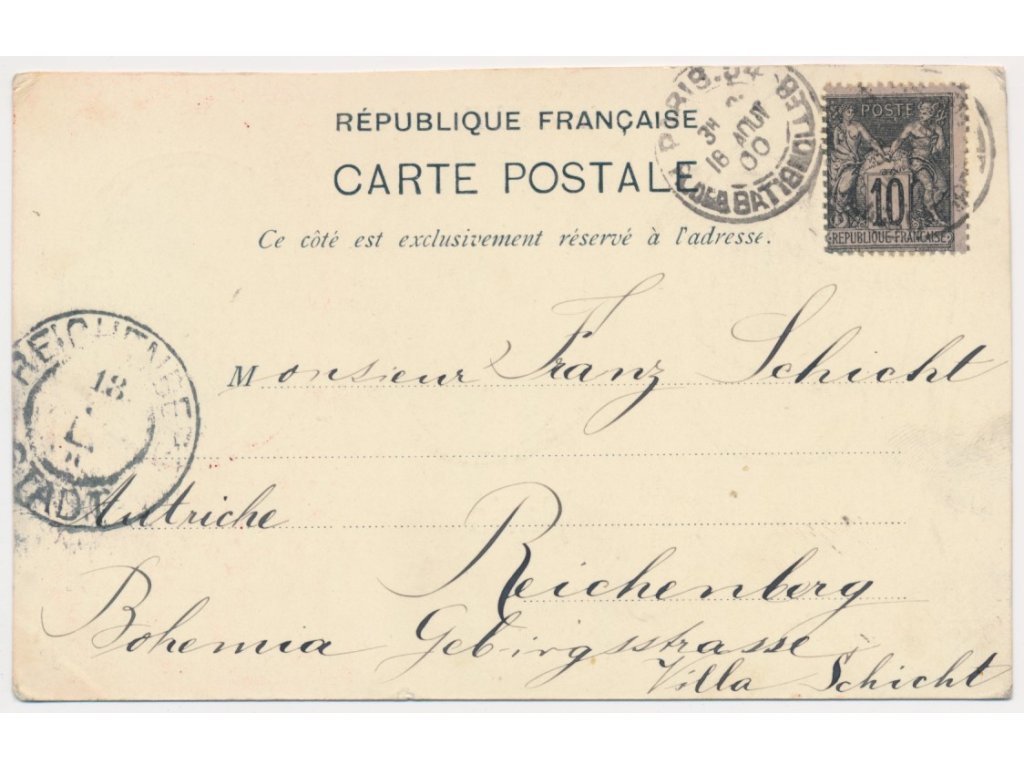 RÉPUBLIQUE FRANÇAISE
CARTE POSTALE
Ce côté est exclusivement réservé à l'adresse.
PARIS. 54
3H
16 AOUT
00
R. DES BATIGNOLLES
POSTE
10
REPUBLIQUE FRANÇAISE
Monsieur Franz Schicht
REICHENBE
18
STADT
Autriche
Reichenberg
Bohemia Gebirgsstrasse
Villa Schicht